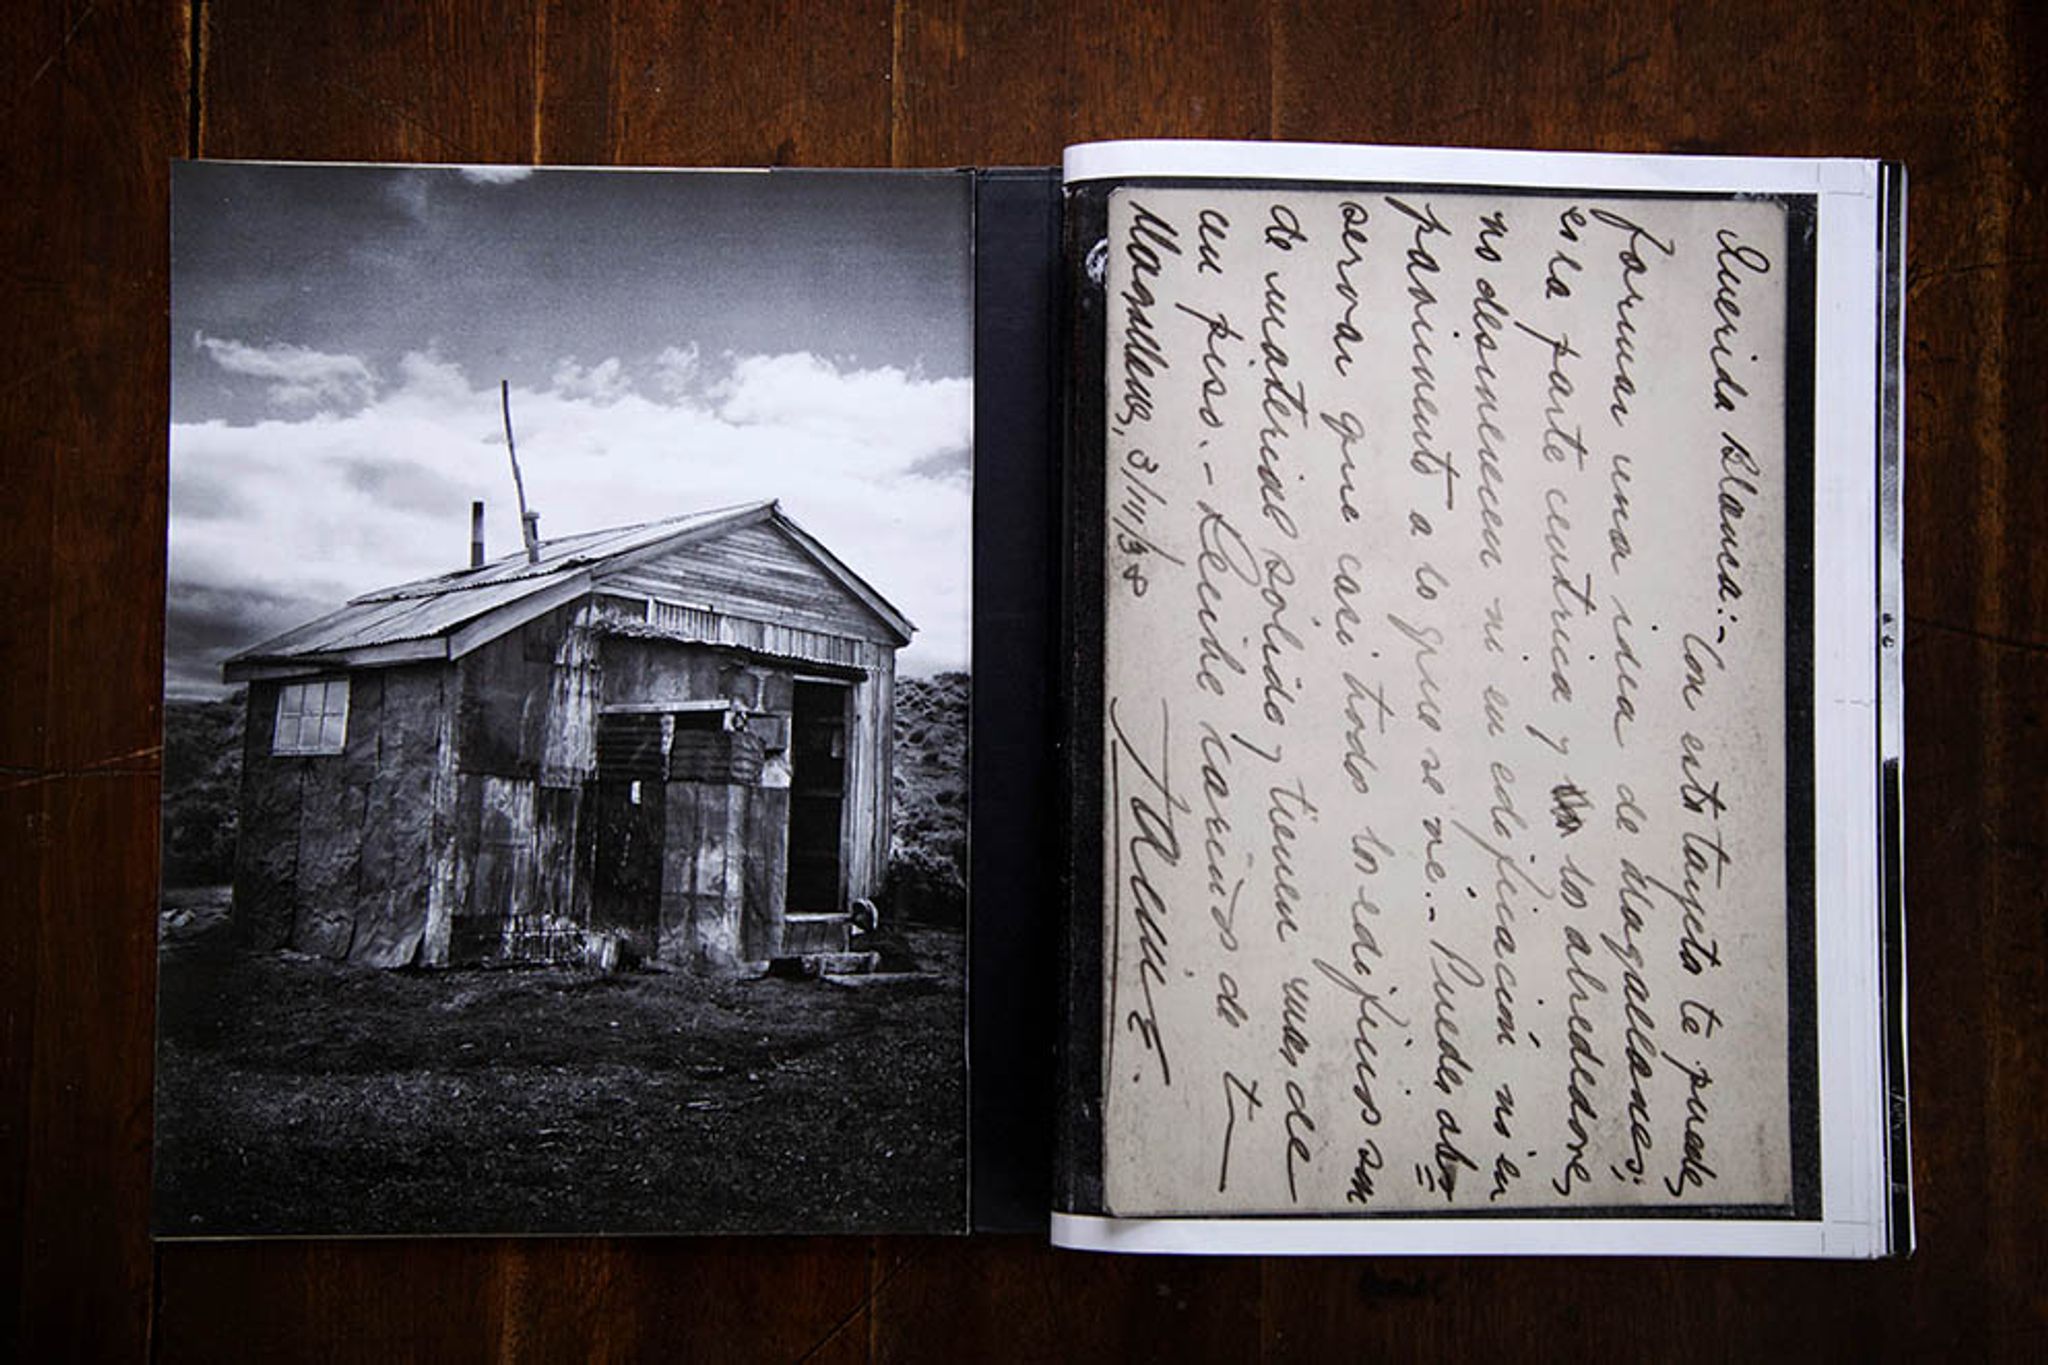 Querida Blanca:- Con esta tarjeta te puedes
formar una idea de Magallanes;
es la parte centrica y los alrededores
no desmerecen ni en edificación ni en
pavimento a lo que se ve.- Puedes ob=
servar que casi todos los edificios son
de material sólido y tienen mas de
un piso.- Recibe cariños de t
Magallanes, 3/11/38 JAIME.